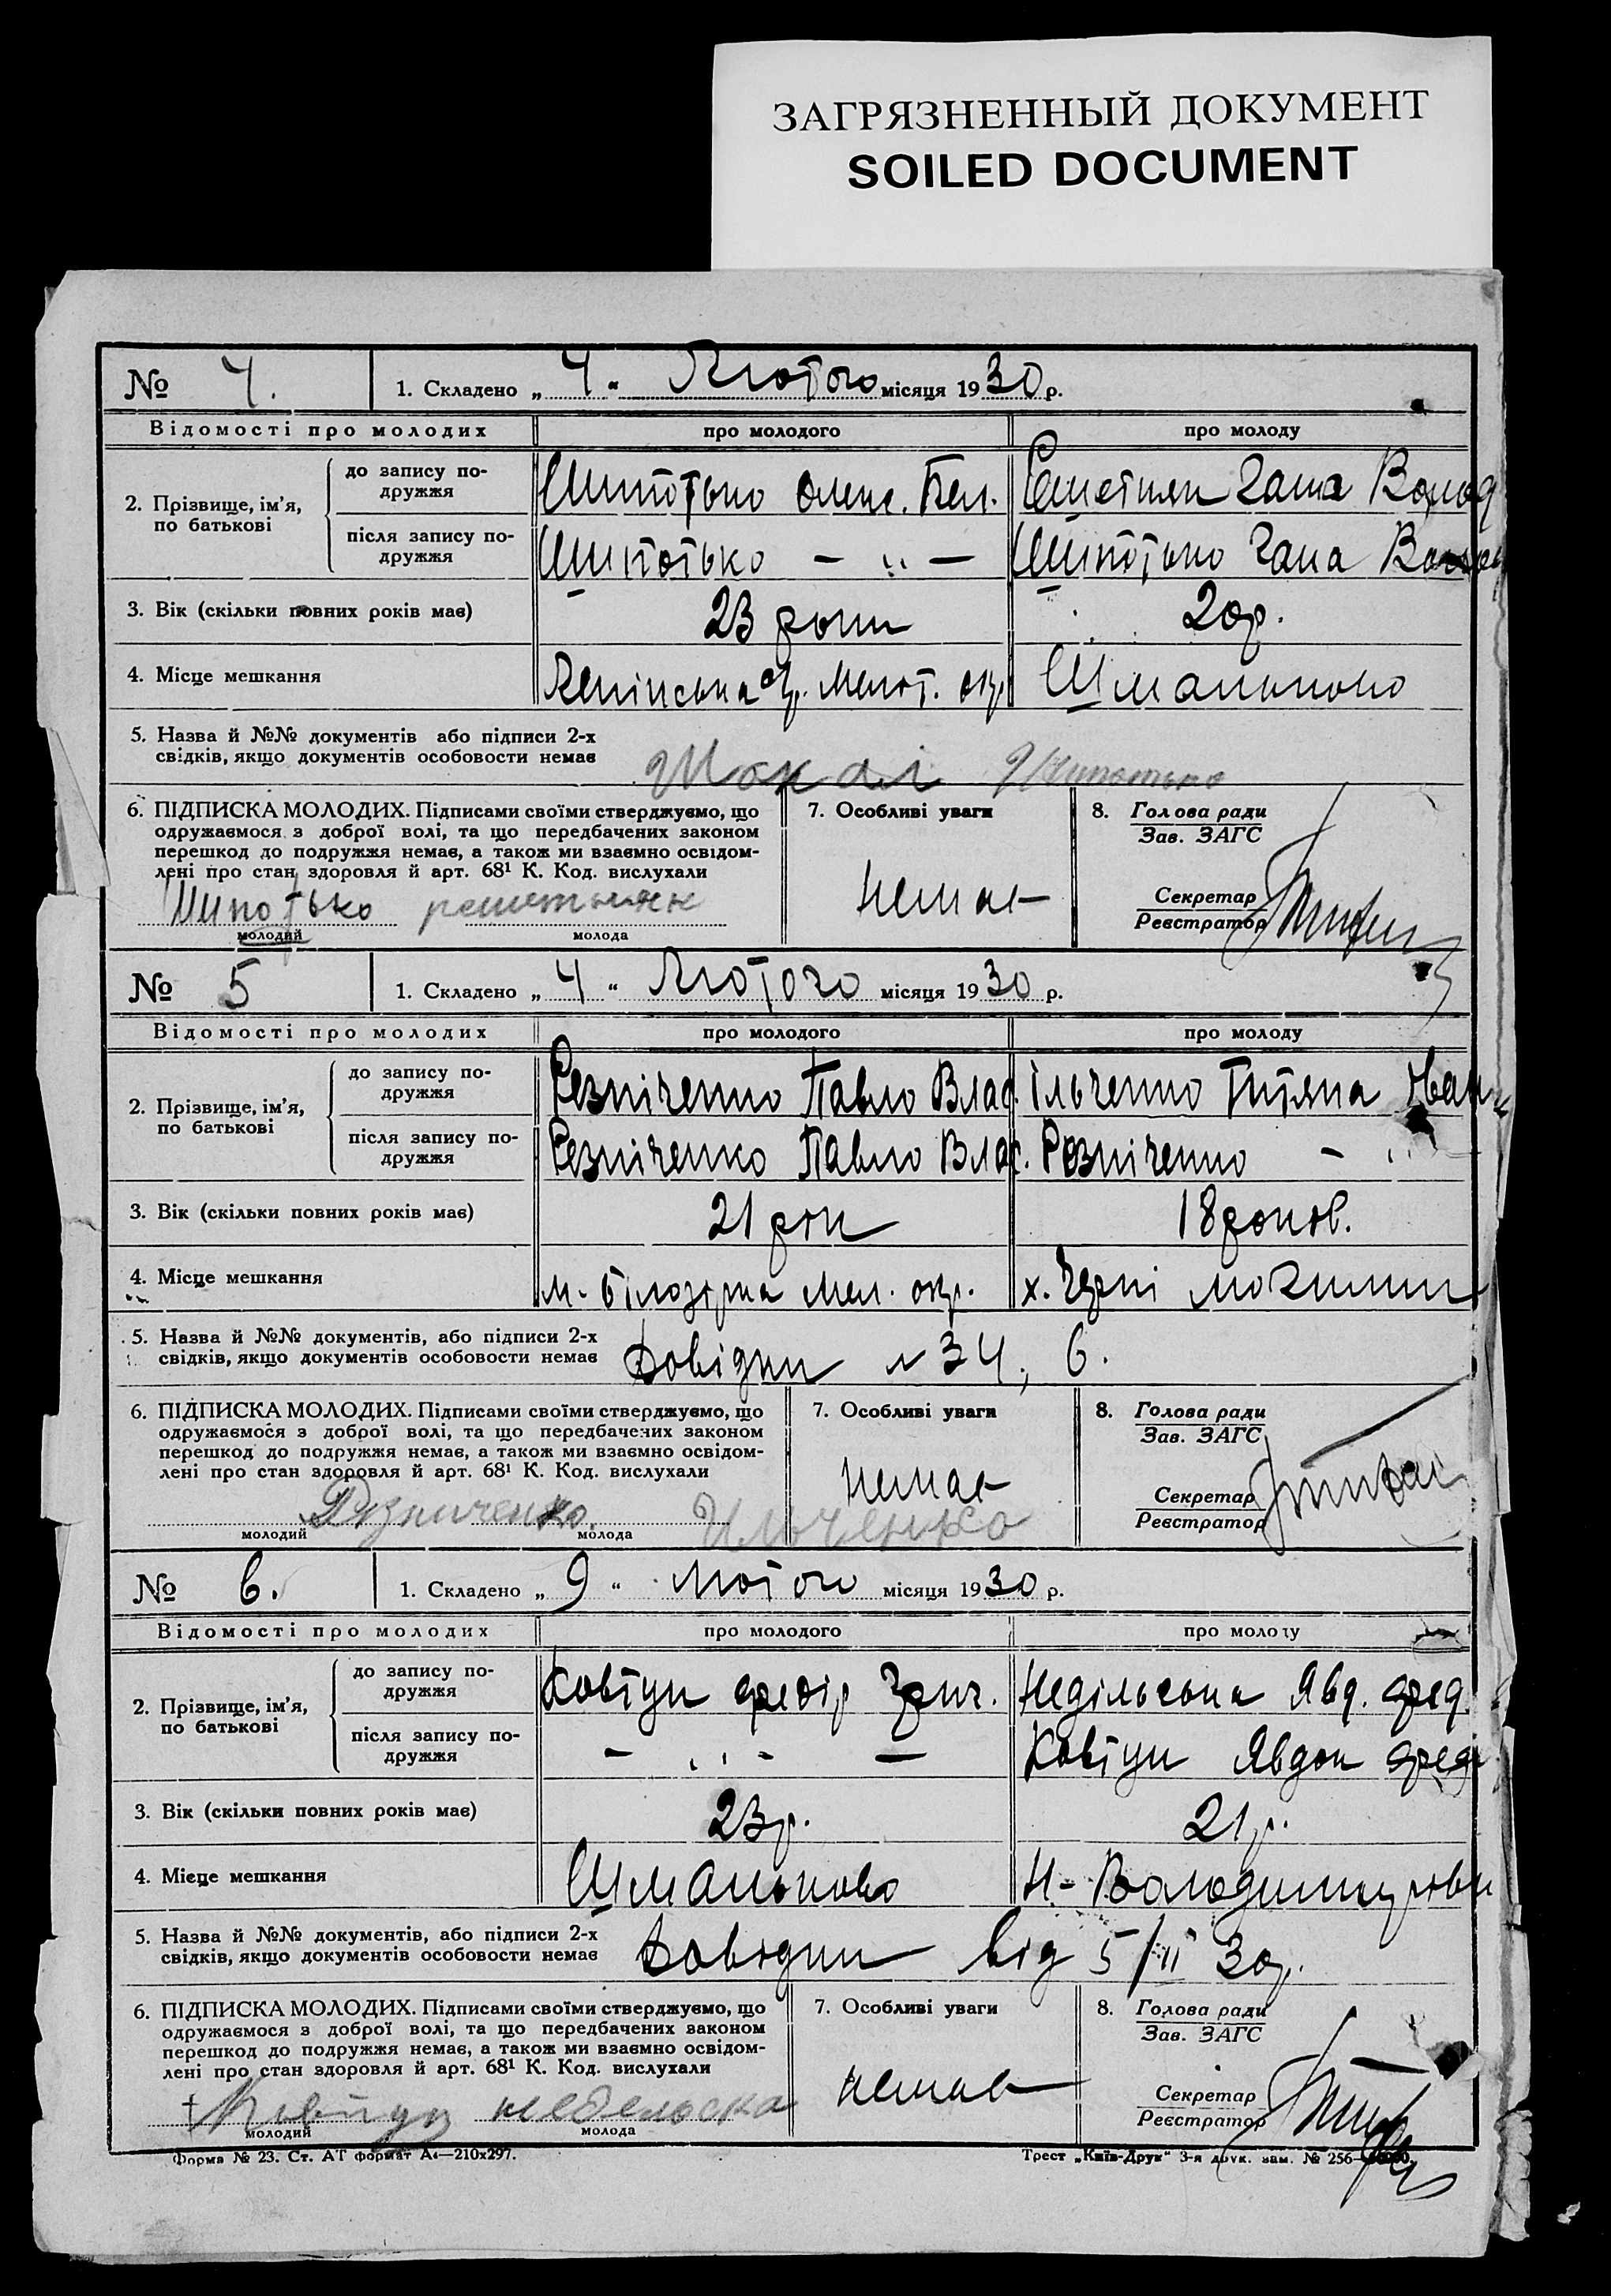 ЗАГРЯЗНЕННЫЙ ДОКУМЕНТ
SOILED DOCUMENT
№ 4. 1. Складено „ 4 “ Лютого місяця 1930 р.
Відомості про молодих про молодого про молоду
2. Прізвище, ім’я, по батькові
до запису по-
дружжя
Шипотько Олекс. Гана Волод
після запису по-
дружжя
Шипотько — „ — Шипотько Гана
3. Вік (скільки повних років має) 23 роки 20 р.
4. Місце мешкання Ленінська Меліт. окр. Шмальково
5. Назва й №№ документів або підписи 2-х
свідків, якщо документів особовости немає
Шипотько
6. ПІДПИСКА МОЛОДИХ. Підписами своїми стверджуємо, що
одружаємося з доброї волі, та що передбачених законом
перешкод до подружжя немає, а також ми взаємно освідом-
лені про стан здоровля й арт. 68¹ К. Код. вислухали
Шипотько решетняк
молодий молода
7. Особливі уваги
немає
8. Голова ради
Зав. ЗАГС
Секретар
Реєстратор
№ 5 1. Складено „ 4 “ Лютого місяця 1930 р.
Відомості про молодих про молодого про молоду
2. Прізвище, ім’я,
по батькові
до запису по-
дружжя
Резніченко Павло Влас. Ільченко Титяна Іван
після запису по-
дружжя
Резніченко Павло Влас. Резніченко — „
3. Вік (скільки повних років має) 21 рік 18 років.
4. Місце мешкання м. Білозірка Мел. окр. х. Чорні могили
5. Назва й №№ документів, або підписи 2-х
свідків, якщо документів особовости немає
Довідки № 34, 6.
6. ПІДПИСКА МОЛОДИХ. Підписами своїми стверджуємо, що
одружаємося з доброї волі, та що передбачених законом
перешкод до подружжя немає, а також ми взаємно освідом-
лені про стан здоровля й арт. 68¹ К. Код. вислухали
Резниченко Ильченко
молодий молода
7. Особливі уваги
немає
8. Голова ради
Зав. ЗАГС
Секретар
Реєстратор
№ 6. 1. Складено „ 9 “ лютого місяця 1930 р.
Відомості про молодих про молодого про молоду
2. Прізвище, ім’я,
по батькові
до запису по-
дружжя
Ковтун Федір Григ. Недільська Явд. Фед.
після запису по-
дружжя
— „ — — Ковтун Явдок Фед
3. Вік (скільки повних років має) 23 р. 21 р.
4. Місце мешкання Шмальково Н-Володимирівки
5. Назва й №№ документів, або підписи 2-х
свідків, якщо документів особовости немає
Довідки від 5/II 30 р.
6. ПІДПИСКА МОЛОДИХ. Підписами своїми стверджуємо, що
одружаємося з доброї волі, та що передбачених законом
перешкод до подружжя немає, а також ми взаємно освідом-
лені про стан здоровля й арт. 68¹ К. Код. вислухали
Ковтун недельска
молодий молода
7. Особливі уваги
немає
8. Голова ради
Зав. ЗАГС
Секретар
Реєстратор
Форма № 23. Ст. АТ формат А₄—210х297. Трест „Київ-Друк“ 3-я друк. зам. № 256—